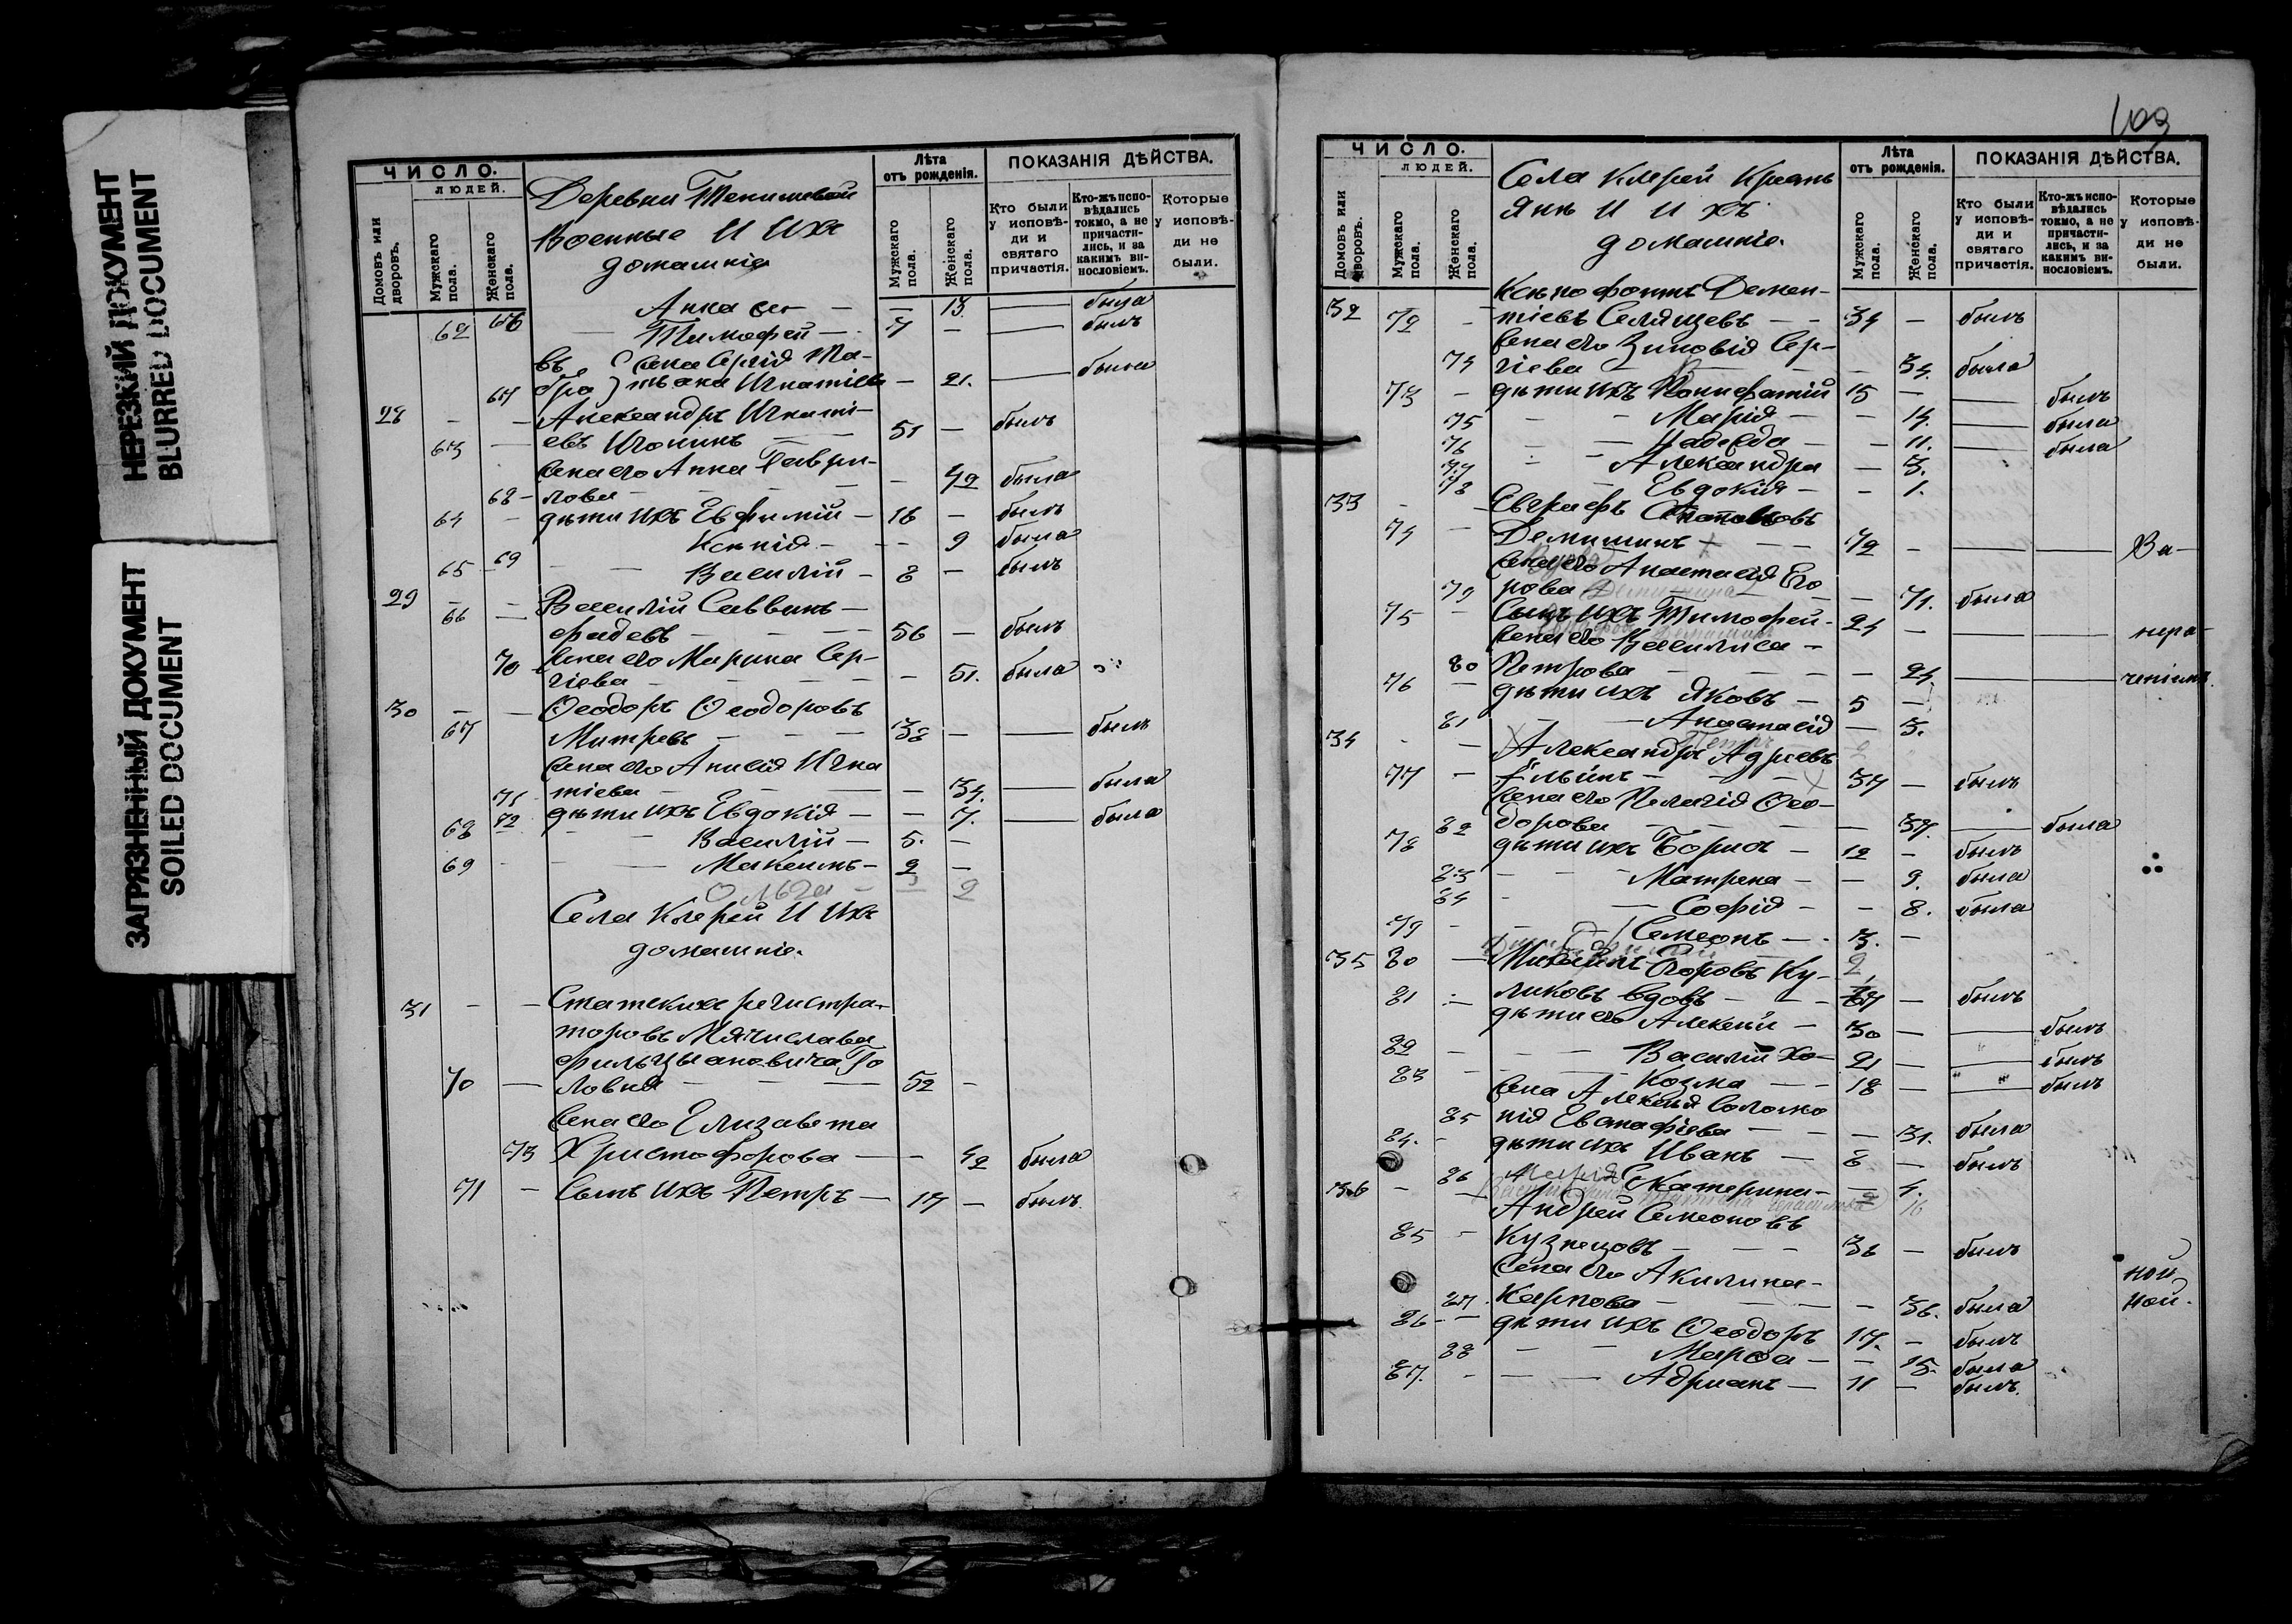 НЕРЕЗКИЙ ДОКУМЕНТ
BLURRED DOCUMENT
ЗАГРЯЗНЕННЫЙ ДОКУМЕНТ
SOILED DOCUMENT
ЧИСЛО.
ЛЮДЕЙ.
Домовъ или дворовъ.
Мужскаго пола.
Женскаго пола.
Деревни Тенишевой
Военные И Ихъ
домашніе
Лѣта отъ рожденія.
Мужскаго пола.
Женскаго пола.
ПОКАЗАНІЯ ДѢЙСТВА.
Кто были у исповѣди и святаго причастія.
Кто-жъ исповѣдались токмо, а не причастились, и за какимъ винословіемъ.
Которые у исповѣди не были.
66 Анна — 13. — была
62 — Тимофей — 7 — — былъ
Жена Сергія Та-
67 тьяна Игнатіева — 21. — была
28 — — Александръ Игнаті-
63 — евъ — 51 — былъ
Жена его Анна Гаври-
68 — лова — — 42 была
64 — дѣти ихъ Евфимій — 16 — былъ
69 Ксенія — — 9 была
65 — Василій — 8 — былъ
29 — — Василій Саввинъ —
66 — Фадеевъ — 56 — былъ
Жена его Марина Сер-
70 гіева — — 51. была
30 — — Ѳеодоръ Ѳеодоровъ
67 Митревъ — 38 — — былъ
Жена его Анисія Игна
71 тіева — — 34. — была
72 дѣти ихъ Евдокія — — 7. — была
68 — Василій — 5. —
69 — Максимъ — 2 —
Ольга — 2
Села И Ихъ
домашніе.
31 — — Статскихъ регистра-
торовъ Мячислава
70 — — 52 —
Жена его Елизавета
73 Христофорова — — 42 была
71 — Сынъ ихъ Петръ — 17 — былъ
103
ЧИСЛО.
ЛЮДЕЙ.
Домовъ или дворовъ.
Мужскаго пола.
Женскаго пола.
Села Крестьянъ
И Ихъ
домашніе.
Лѣта отъ рожденія.
Мужскаго пола.
Женскаго пола.
ПОКАЗАНІЯ ДѢЙСТВА.
Кто были у исповѣди и святаго причастія.
Кто-жъ исповѣдались токмо, а не причастились, и за какимъ винословіемъ.
Которые у исповѣди не были.
Ксенофонтъ Демен-
32 72 — тіевъ Селящевъ — 34 — былъ
Жена его Зиновія Сер-
74 гіева — 34. была
73 — дѣти ихъ Вонифатій 15 — — былъ
75 — Марія — — 14. — была
76 — Надежда — — 11. — была
77 — Александра — 3.
78 — Евдокія — — 1.
33 — — Евграфъ
74 — Демишинъ — 72 — — — За-
Жена его Анастасія Его
79 рова — 71. была
75 — Сынъ ихъ Тимофей — 24 — — — нера-
Жена его Василиса —
80 Петрова — — 24. — — ченіемъ
76 — дѣти ихъ Яковъ — 5 —
81 — Анастасія — 3.
34 — — Александръ Адріевъ
77 — Ильинъ — 37 — былъ
Жена его Пелагія Ѳео-
82 дорова — — 37. — была
78 — дѣти ихъ Борисъ — 12 — былъ
83 — Матрена — — 9. была
84 — Софія — — 8. была
79 — Симеонъ — 3. —
35 80 — Михаилъ Егоровъ Ку-
ликовъ вдовъ — 67 — былъ
81 — дѣти его Алексей — 30 — — былъ
82 — — Василій Хо- 21 — — былъ
83 — Козма — 18 — — былъ
Жена Алексея Соломо
85 нія Евстафіева — — 31. была
84. — дѣти ихъ Иванъ — 8 — былъ
86 Марія Екатерина — — 4.
36 — — Андрей Симеоновъ
85 — Кузнецовъ — 36 — былъ
Жена его Акилина —
87. Карпова — — 36. была
86 — — дѣти ихъ Ѳеодоръ 17. — былъ
88 — — Марѳа — — 15. была
87. — — Адріанъ — 11 — былъ.